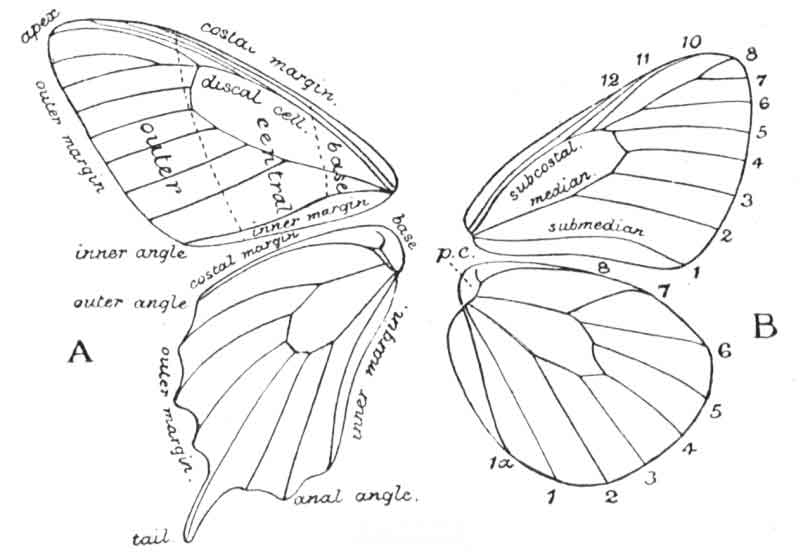 apex
costal margin.
outer margin
discal cell.
outer
central
base
inner margin
inner angle
costal margin
base
outer angle
A
outer margin.
inner margin.
anal angle.
tail
12
11
10
8
7
6
5
4
3
2
1
subcostal.
median.
submedian
p.c.
8
7
6
5
4
3
2
1
1a
B